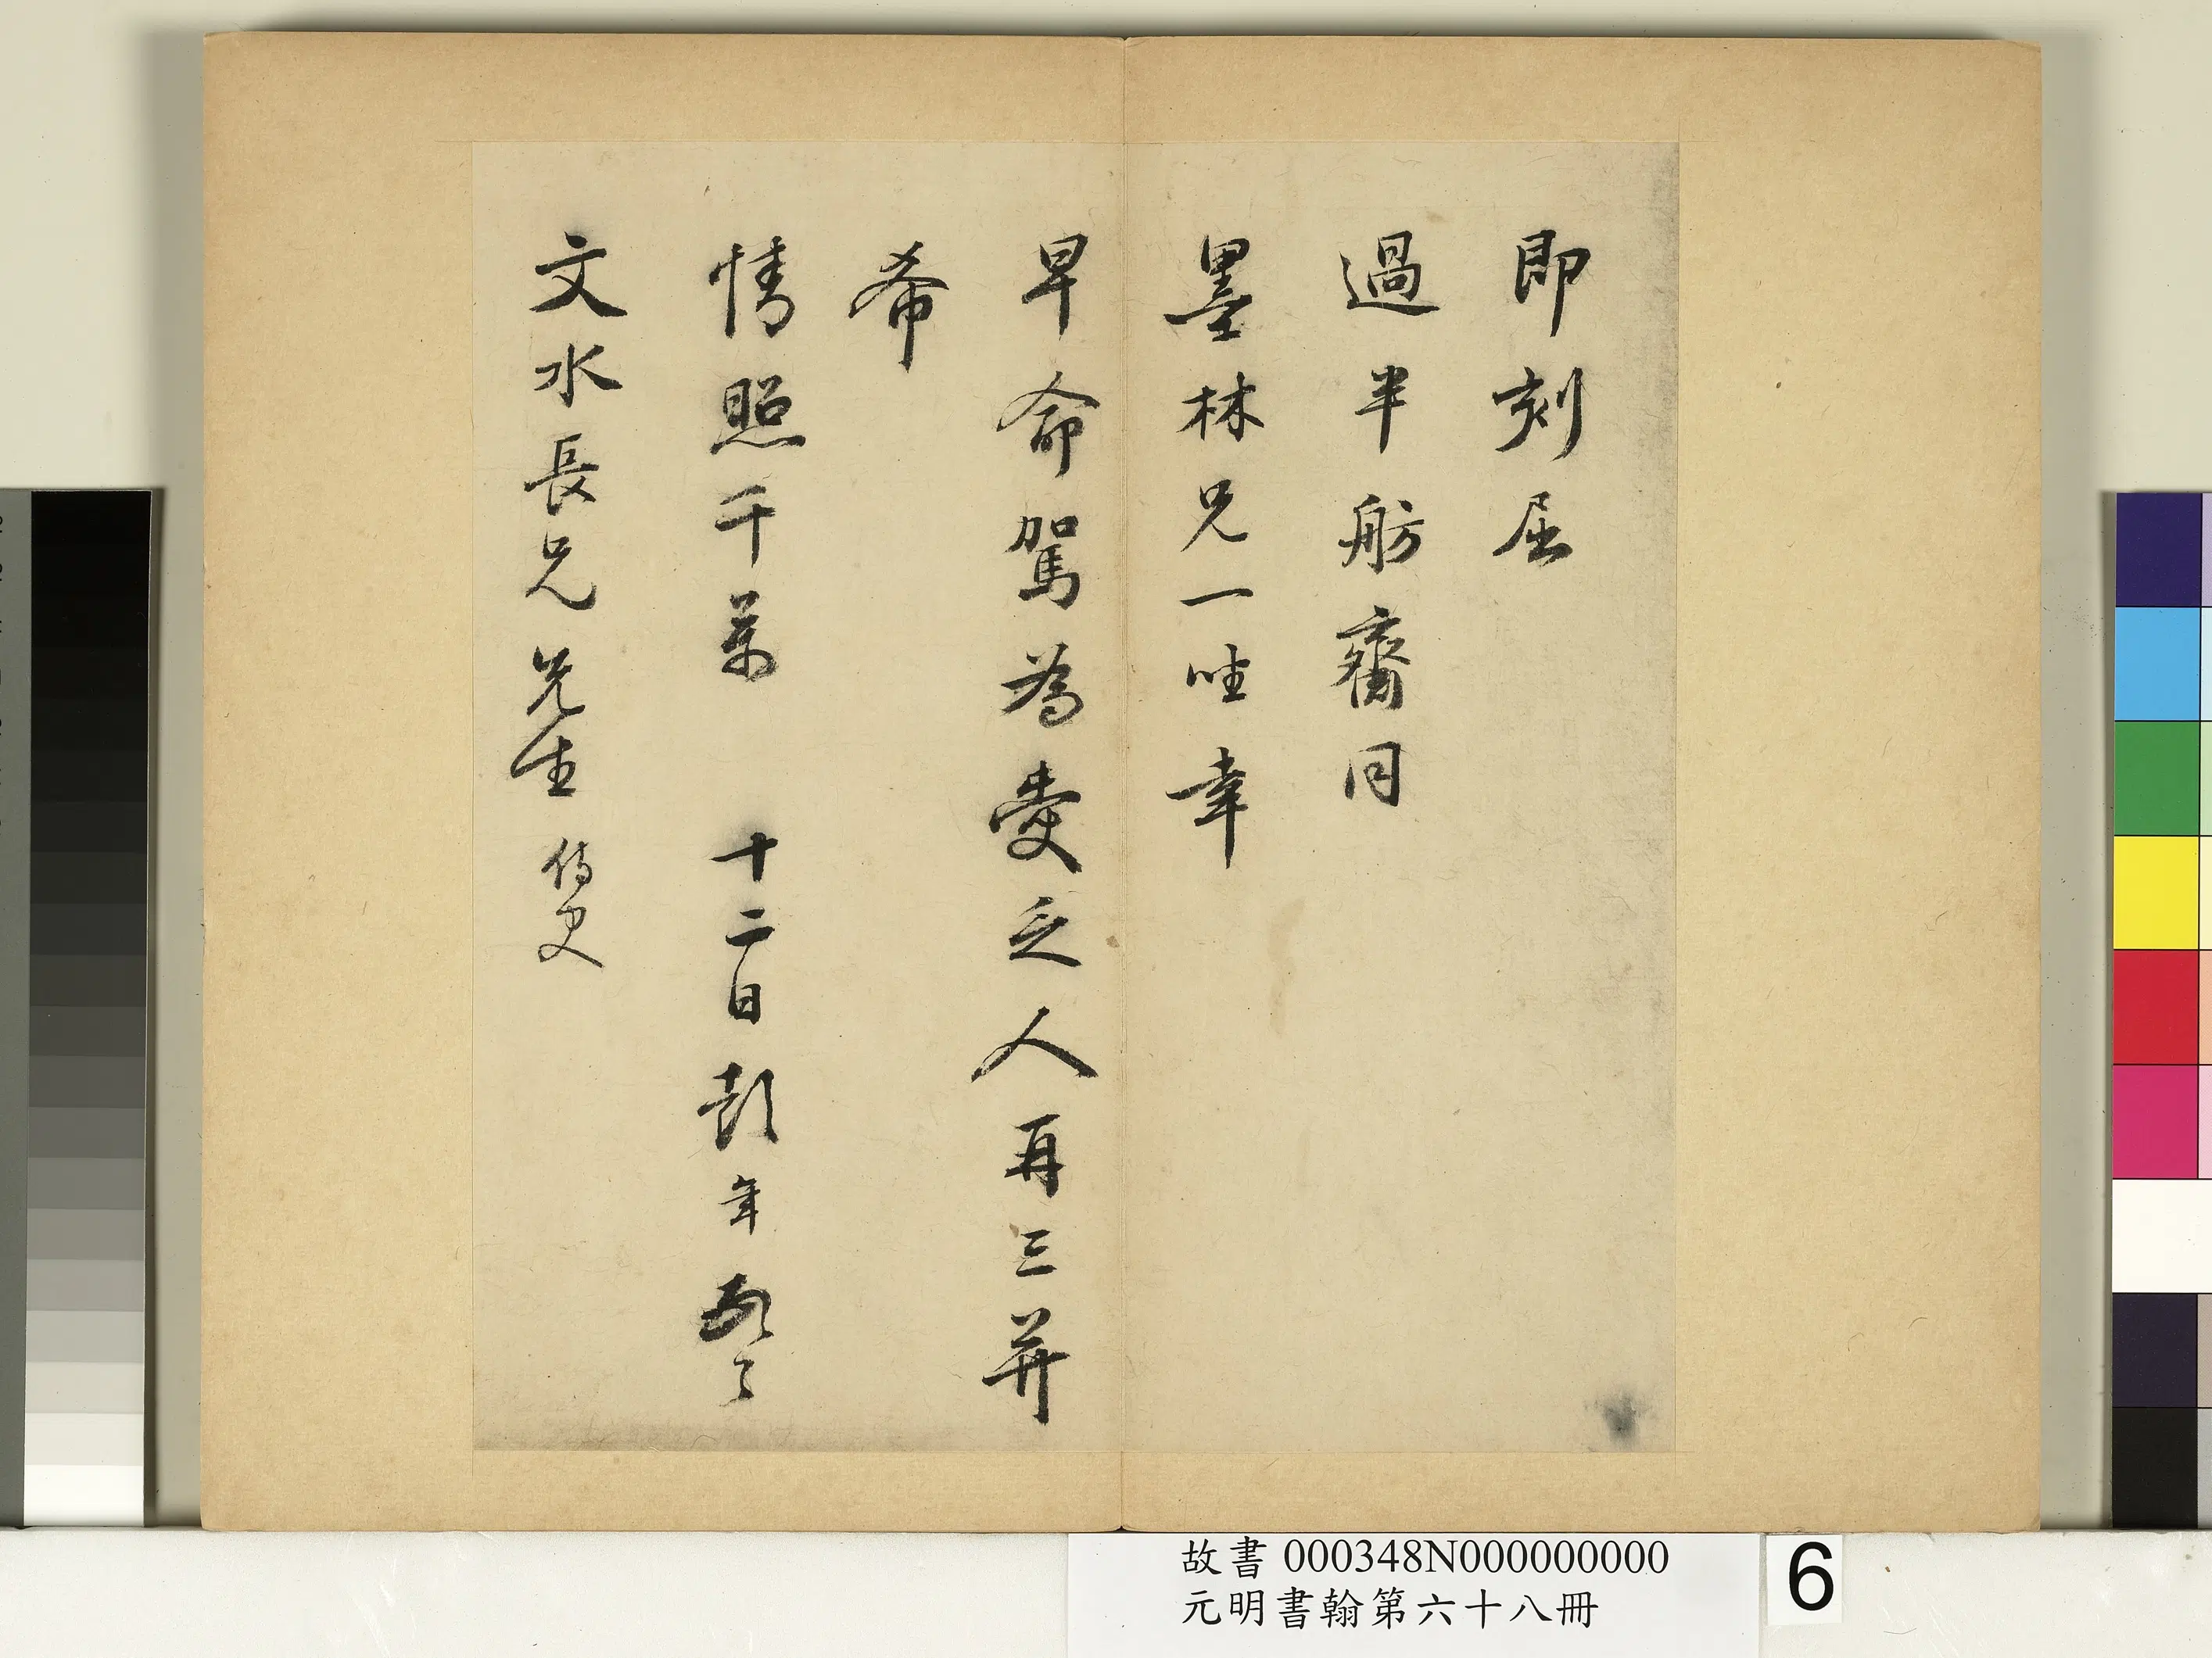 即刻屈
過半舫齋同
墨林兄一唑幸
早命駕為愛乏人再三并
希
情照千萬 十二日彭年頓首
文水長兄先生 侍史
故書000348N000000000
元明書翰第六十八冊
6